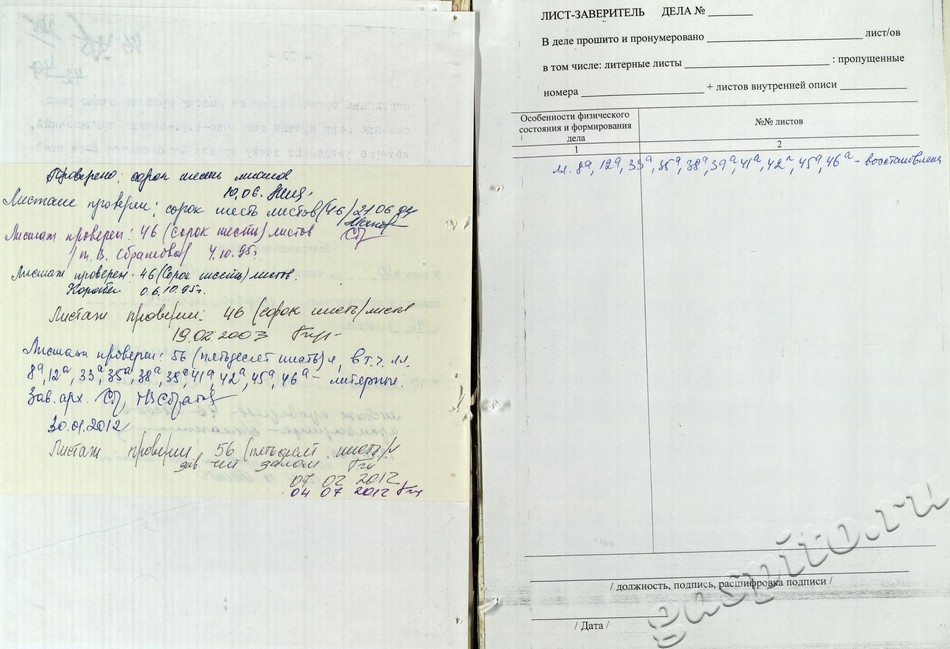 Проверено: сорок шесть листов
10.06.
Листаж проверен: сорок шесть листов (46) 21.06.94
Листаж проверен: 46 (сорок шесть) листов
4.10.95г.
Листаж проверен: 46 (Сорок шесть) листов.
06.10.95г.
Листаж проверен: 46 (сорок шесть) листов
19.02.2003
Листаж проверен: 56 (пятьдесят шесть) л, в т.ч. лл.
8а, 12а, 33а, 35а, 38а, 39а, 41а, 42а, 45а, 46а - литерные.
Зав. арх.
30.01.2012
Листаж проверен: 56 (пятьдесят шесть) л
зав. чит залом
07 02 2012
04 07 2012
ЛИСТ-ЗАВЕРИТЕЛЬ ДЕЛА № ________
В деле прошито и пронумеровано ________ лист/ов
в том числе: литерные листы ________ : пропущенные
номера ________ + листов внутренней описи ________
Особенности физического состояния и формирования дела
№№ листов
1
2
лл. 8а, 12а, 33а, 35а, 38а, 39а, 41а, 42а, 45а, 46а - восстановлены
/ должность, подпись, расшифровка подписи /
/ Дата /
gaspito.ru